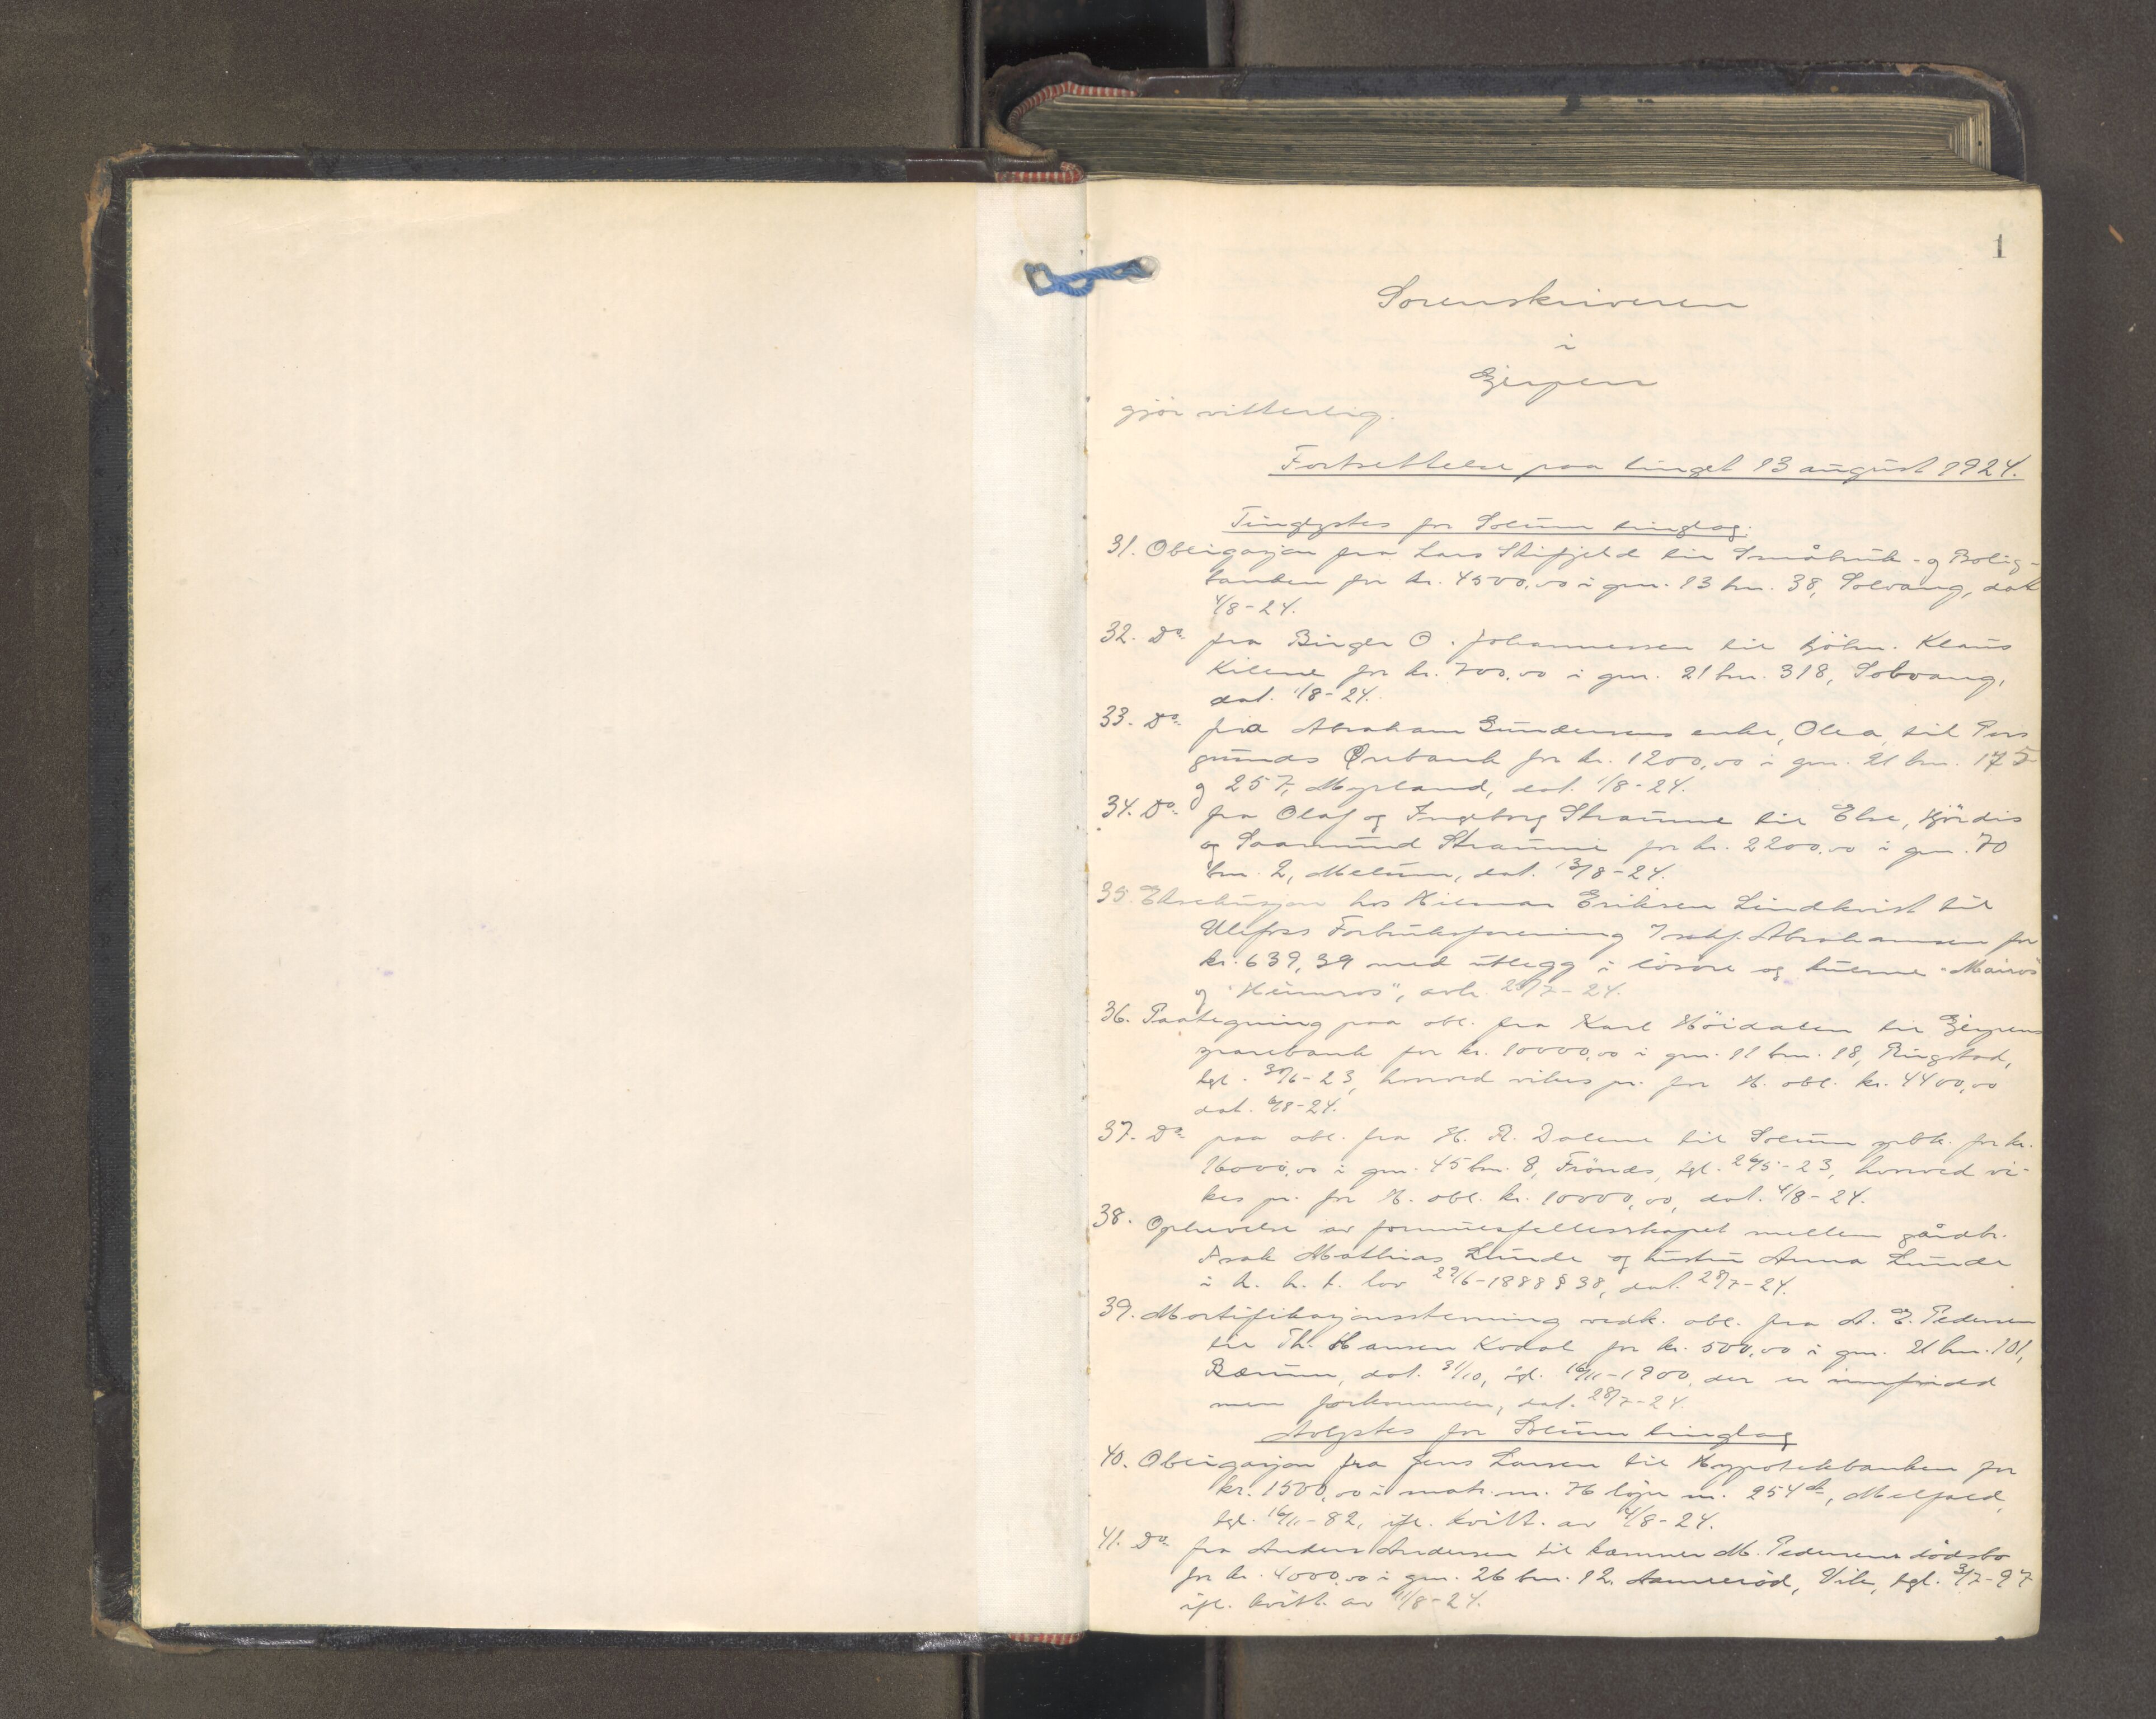 1
Sorenskriveren
i
Gjerpen
gjør vitterlig.
Fortsettelse paa tinget 13 august 1924.
Tinglystes for Solum tinglag.
31. Obligasjon fra Lars Skifjeld til Småbruk- og Bolig-
banken for kr. 4500,00 i gnr. 13 bnr. 38, Solvang, dat
4/8-24.
32. Do. fra Birger O. Johannessen til kjøbm. Klaus
Kilene for kr. 700,00 i gnr. 21 bnr. 318, Solvang,
dat. 1/8-24.
33. Do. fra Abraham Gundersens enke, Olea, til Pors
grunds Ørebank for kr. 1200,00 i gnr. 21 bnr. 175
og 257, Myrland, dat. 1/8-24.
34. Do. fra Olaf og Ingeborg Straume til Else, Hjördis
og Saamund Straume for kr. 2200,00 i gnr. 70
bnr. 2, Melum, dat. 13/8-24.
35. Eksekusjon hos Hilmar Eriksen Lindkvist til
Ulefoss Forbruksforening Abrahamsen for
kr. 639,39 med utlegg i løsøre og kuerne "Mairos"
og "Heimros", avh. 28/7-24.
36. Paategning paa obl. fra Karl Höidalen til Gjerpens
sparebank for kr. 10000,00 i gnr. 11 bnr. 18, Ringstad,
tgl. 30/6-23, hvorved vikes pr. for H. obl. kr. 4400,00
dat. 6/8-24.
37. Do. paa obl. fra H. R. Dolene til Solum spbk. for kr.
16000,00 i gnr. 45 bnr. 8, Frönes, tgl. 26/5-23, hvorved vi-
kes pr. for H. obl. kr. 10000,00, dat. 4/8-24.
38. Ophevelse av formuesfellesskapet mellem gårdbr.
Isak Mathias Lunde og hustru Anna Lunde
i h. h. t. lov 29/6-1888 § 38, dat. 28/7-24.
39. Mortifikasjonsstevning vedk. obl. fra A. E. Pedersen
til Th. Hansen Kodal for kr. 500,00 i gnr. 21 bnr. 101,
Bærum, dat. 31/10, tgl. 16/11-1900, der er innfridd
men forkommen, dat. 28/7-24.
Avlystes for Solum tinglag
40. Obligasjon fra Jens Larsen til Hypotekbanken for
kr. 1500,00 i matr. nr. 76 löpe nr. 254 , Melfald,
tgl. 16/11-82, ifl. kvitt. av 4/8-24.
41. Do. fra Anders Andersen til kæmner M. Pedersens dödsbo
for kr. 4000,00 i gnr. 26 bnr. 12, Aameröd, Vile, tgl. 3/7-97
ifl. kvitt. av 11/8-24.